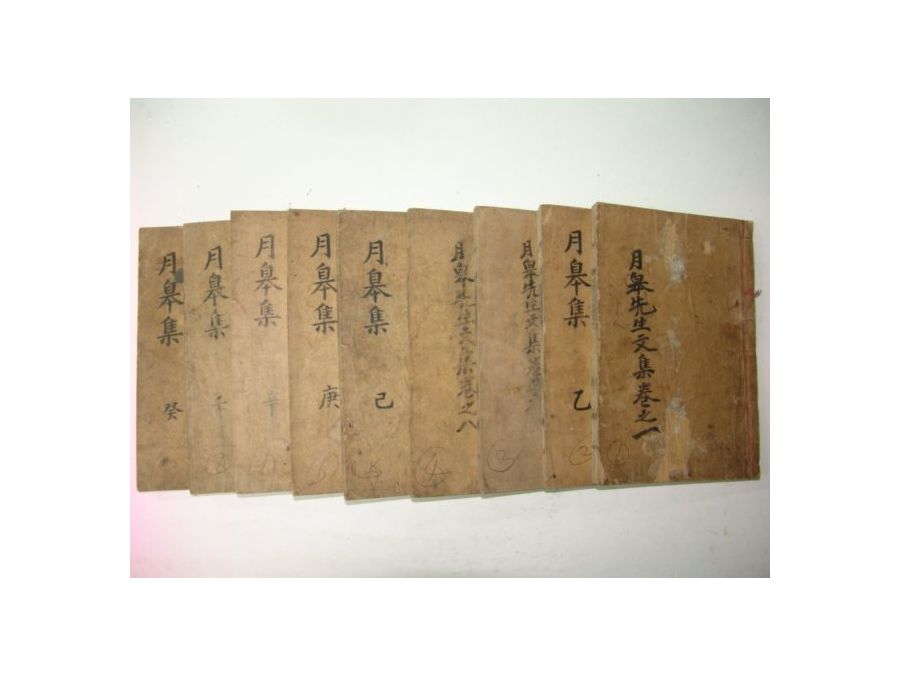 月皐先生文集卷之一
月皐集 乙
月皐先生文集卷
月皐先生文集卷之八
月皐集 己
月皐集 庚
月皐集 辛
月皐集 壬
月皐集 癸